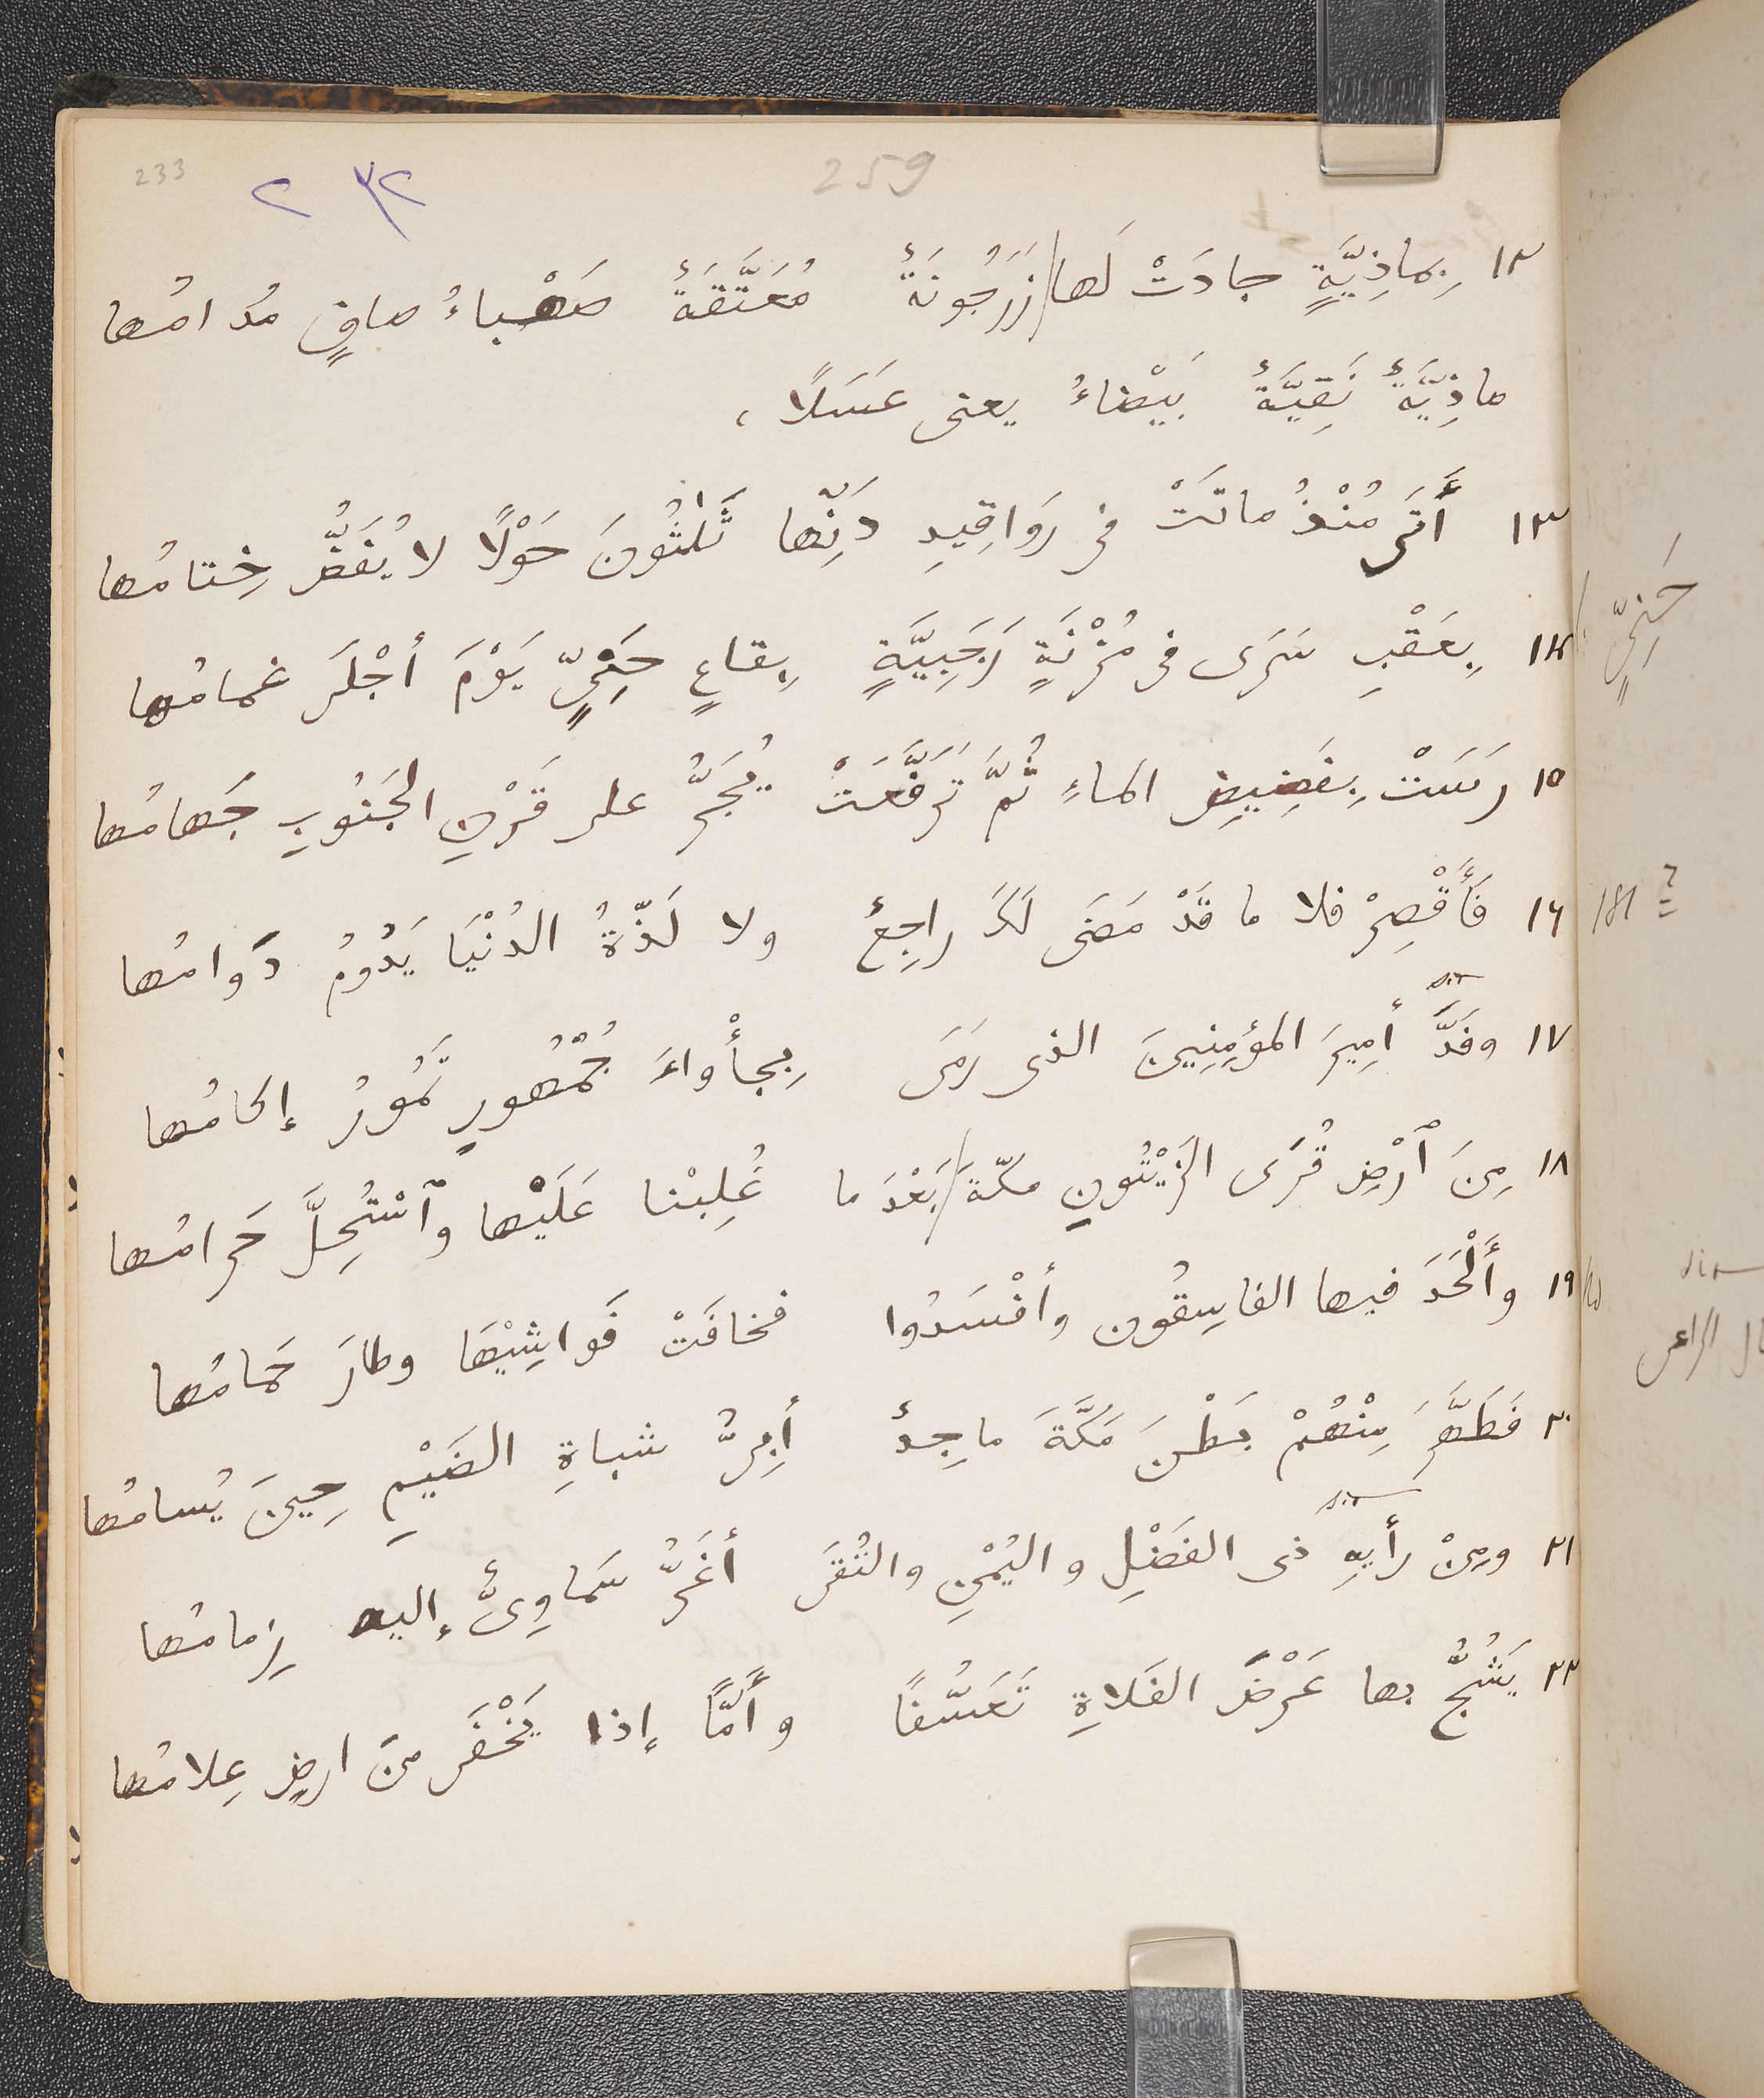 233
٢٣٢
259
١٢ بِماذِيَّةٍ جادَتْ لَها زَرَجُونَةٌ مُعَتَّقَةٌ صَهْباءُ صافٍ مُدامُها
ماذِيَّةٌ نَقِيَّةٌ بَيْضاءُ يعنى عَسَلًا،
١٣ أَتَى مُنْذُ ماتَتْ فى رَواقِيدِ دَنِّها ثَلٰثُونَ حَوْلًا لا يُفَضُّ خِتامُها
١٤ بِعَقْبِ سَرَى فى مُزْنَةٍ رَجَبِيَّةٍ بِقاعٍ حَنِىٍّ يَوْمَ أجْلَى غمامُها
١٥ رَسَتْ بِفَضِيضِ الماءِ ثُمَّ تَرَفَّعَتْ يُجَرُّ على قَرْنِ الجَنُوبِ جَهامُها
١٦ فَأَقْصِرْ فلا ما قَدْ مَضَى لَكَ راجِعٌ ولا لَذَّةُ الدُنْيَا يَدُومُ دَوامُها
sic
١٧ وفَدَّ أمِيرَ المؤمِنِينَ الذى رَمَى بِجأْواءَ جُمْهُورٍ تَمُورُ إكامُها
١٨ مِنَ ٱرْضِ قُرَى الزَيْتُونِ مكّةَ بَعْدَ ما غُلِبْنا عَلَيْها وٱسْتُحِلَّ حَرامُها
١٩ وأَلْحَدَ فيها الفاسِقُون وأفْسَدُوا فخافَتْ فَواشِيْهَا وطارَ حَمامُها
٢٠ فطَهَّرَ مِنْهُمْ بَطْنَ مَكَّةَ ماجِدٌ أبِىُّ شباةِ الضَيْمِ حِينَ يُسامُها
sic
٢١ ومِنْ رأيِهِ ذى الفَضْلِ واليُمْنِ والتُقَى أغَرُّ سَماوِىٌّ إليه زِمامُها
٢٢ يَشُجُّ بها عَرْضَ الفَلاةِ تَعَسُّفًا وأَمَّا إذا يَخْفَى منَ ارضٍ عِلامُها
حَنِىٍّ
sic